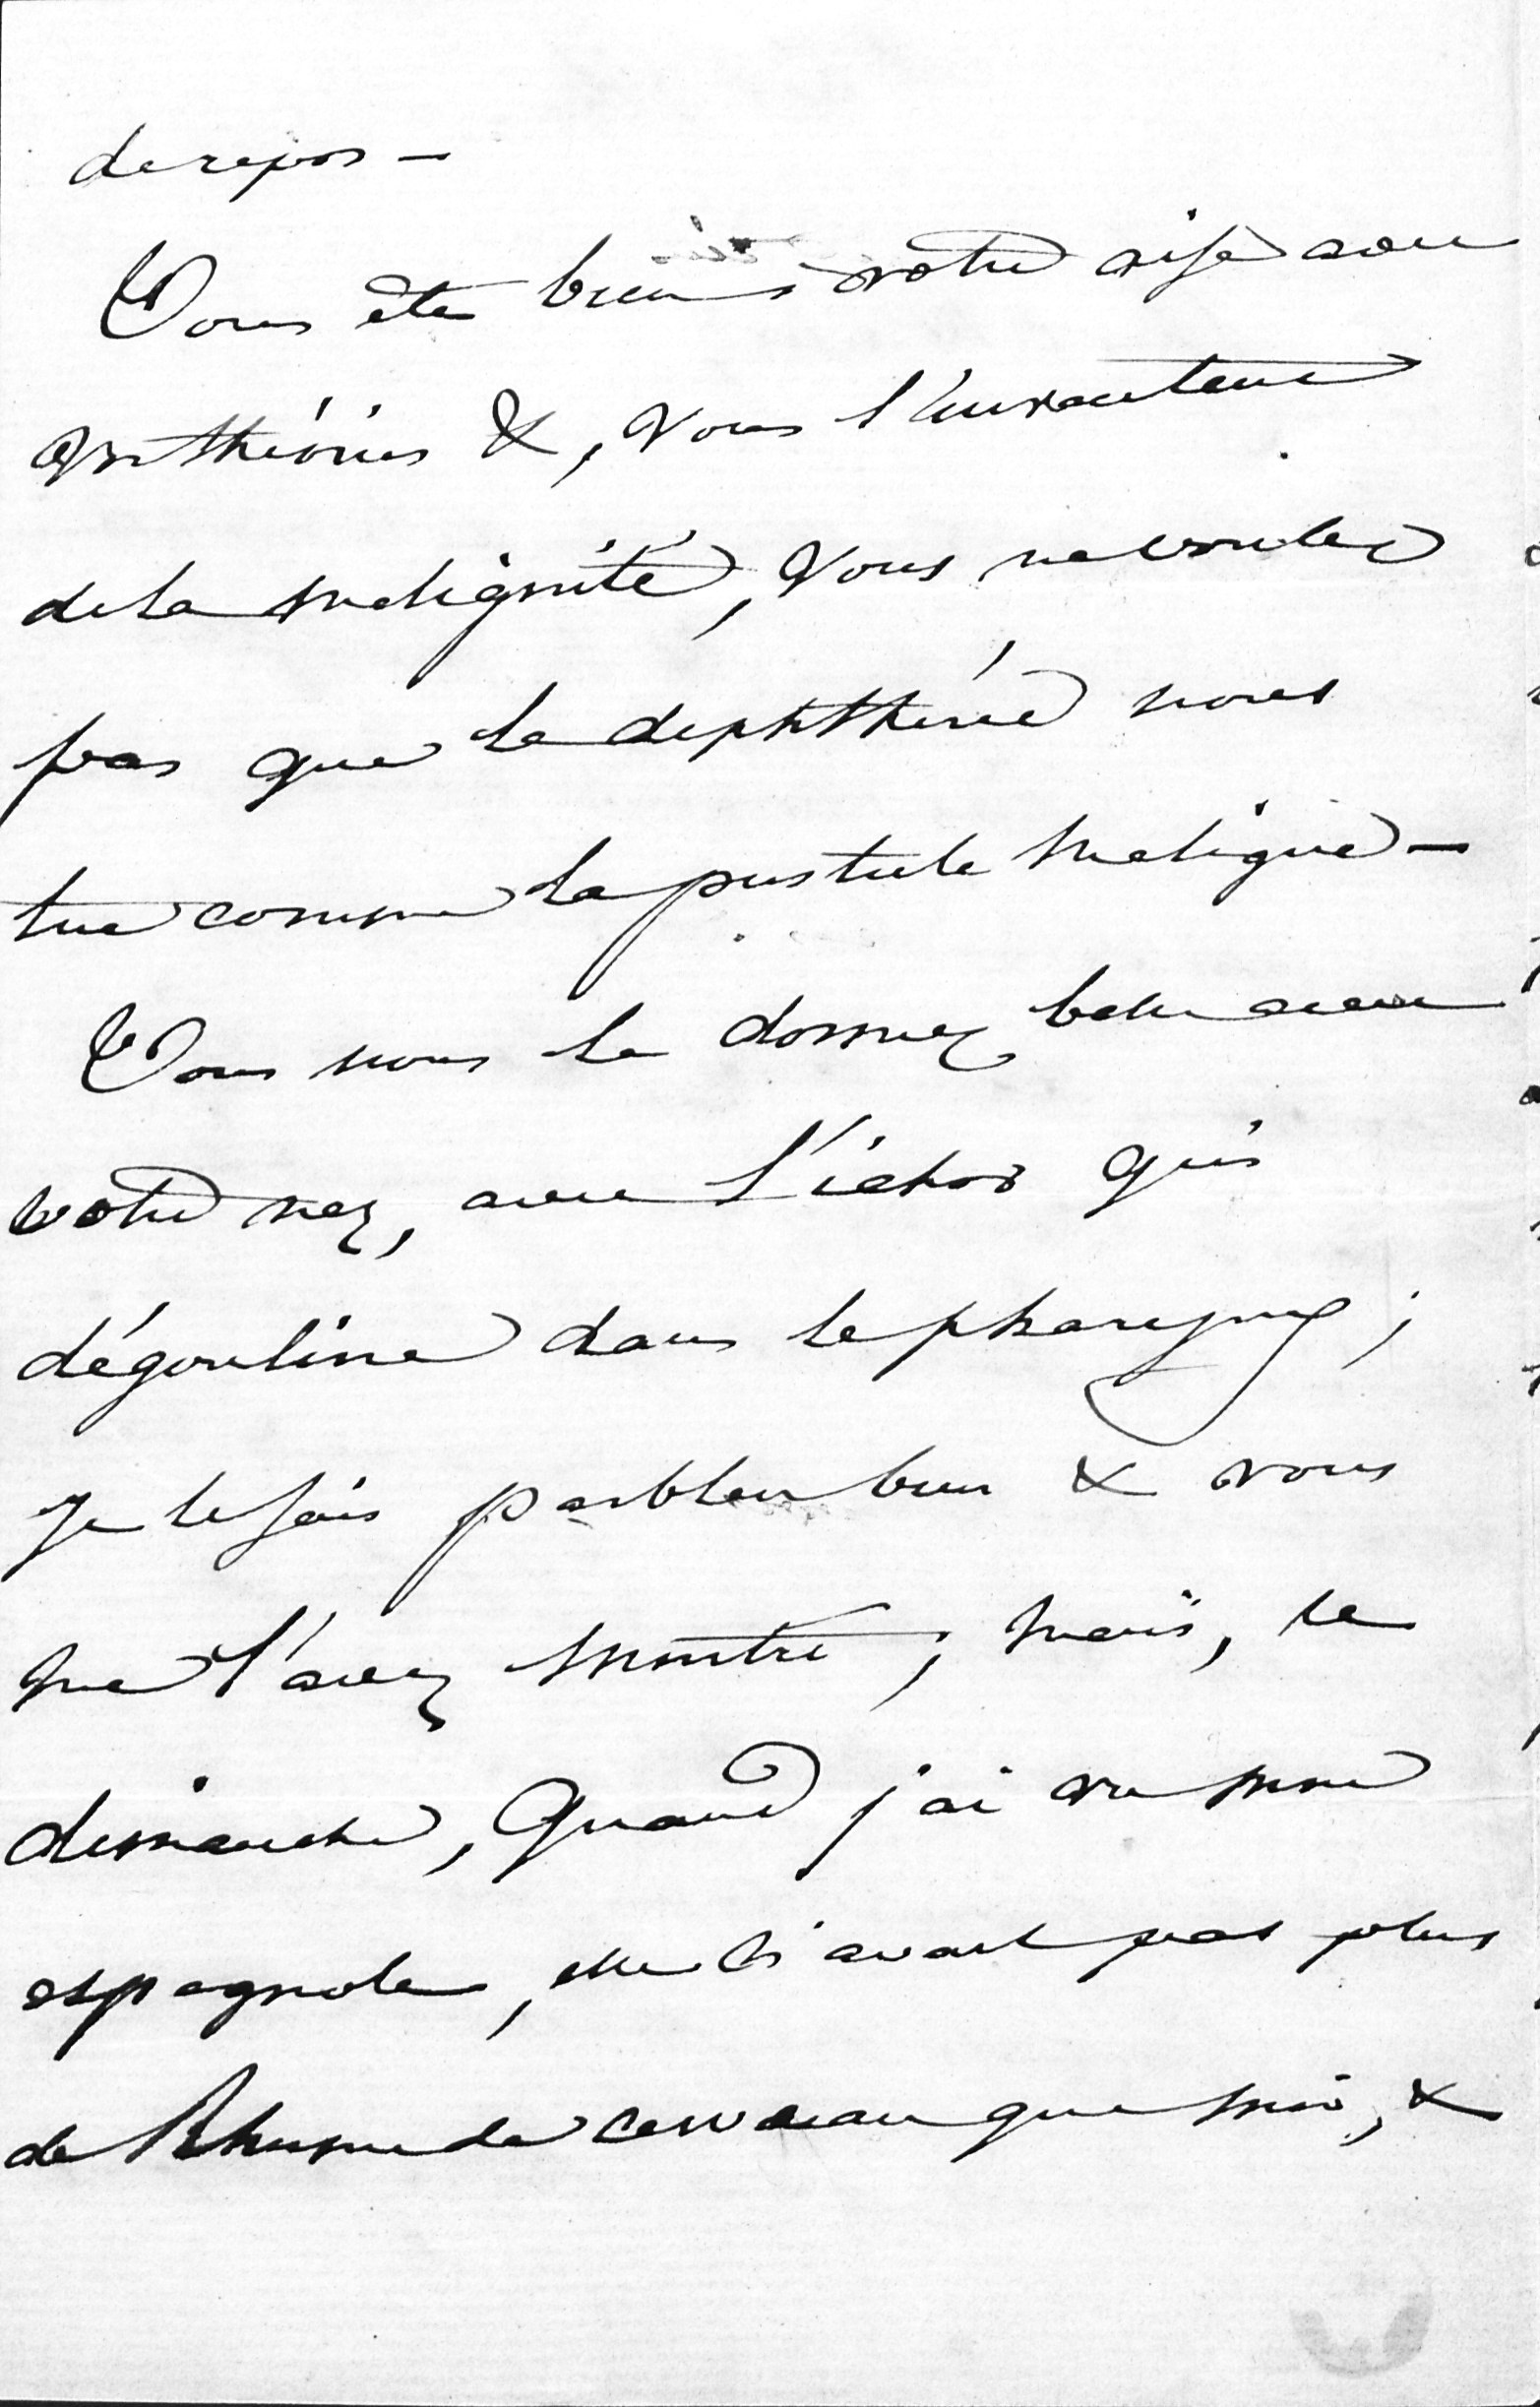 de repos —
Vous êtes bien à votre aise avec
vos théories &, vous l'inventeur
de la malignité, vous ne voulez
pas que la diphthérie nous
tue comme la pustule maligne —
Vous nous la donnez belle avec
votre nez, avec l'ichor qui
dégouline dans le pharynx ;
je le sais parbleu bien & vous
me l'avez montré ; mais, le
dimanche, quand j'ai vu mon
espagnole, elle n'avait pas plus
de Rhume de cerveau que moi, &